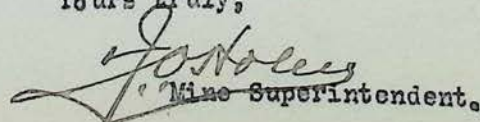 Yours truly,
Mine Superintendent.